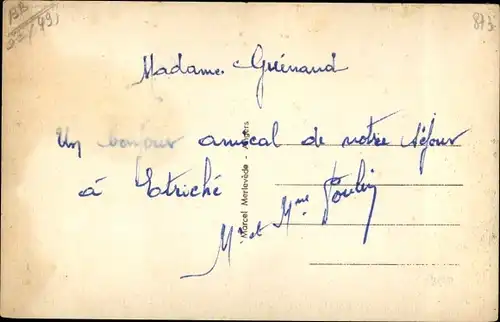 BB
(49)
873
Madame Guénaud
Un bonjour amical de notre séjour
à Etriché
Mr et Mme Poulin
Marcel Merlevède - Angers